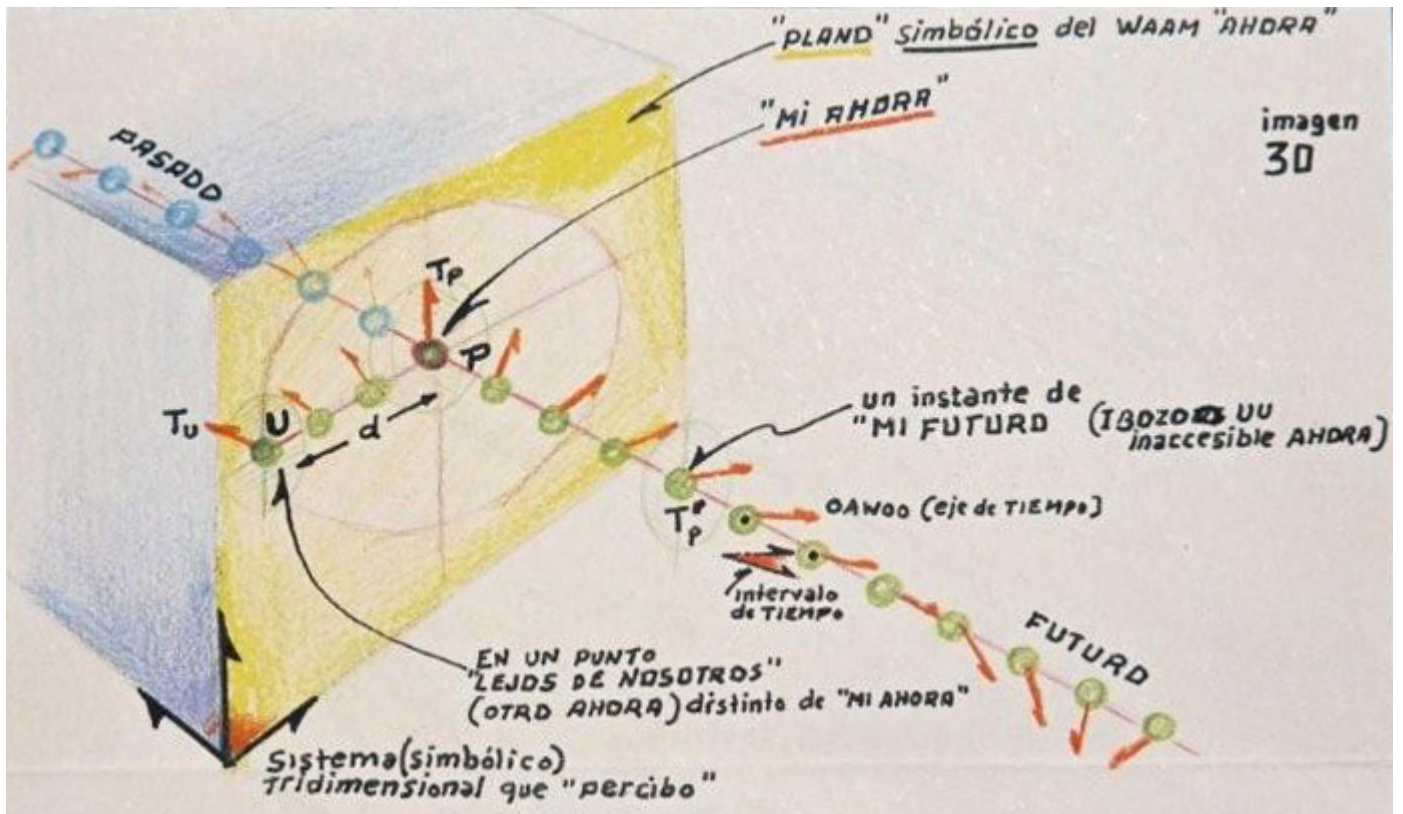 "PLANO" simbólico del WAAM "AHORA"
"Mi AHORA"
imagen
30
PASADO
Tp
P
U
TU
d
un instante de
"MI FUTURO (IBOZOO UU
inaccesible AHORA)
T'p
OAWOO (eje de TIEMPO)
intervalo
de TIEMPO
FUTURO
EN UN PUNTO
"LEJOS DE NOSOTROS"
(OTRO AHORA) distinto de "MI AHORA"
Sistema (simbólico)
Tridimensional que "percibo"